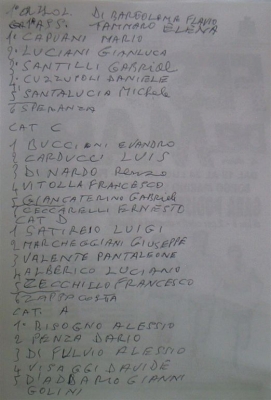 DI BARTOLOMA FLAVIO
TAMMARO ELENA
1° CAPUANI MARIO
2° LUCIANI GIANLUCA
3° SANTILLI GABRIEL
4° CUZZUPOLI DANIELE
5 SANTALUCIA MICHELE
6 SPERANZA
CAT C
1 BUCCIONI EVANDRO
2 CARDUCCI LUIS
3 DI NARDO Renzo
4 VITOLLA FRANCESCO
5 GIANCATERINO GABRIEL
6 CECCARELLI ERNESTO
CAT D
1 SATIREIO LUIGI
2 MARCHEGGIANI GIUSEPPE
3 VALENTE PANTALEONE
4 ALBERICO LUCIANO
5 ZECCHILLO FRANCESCO
6 ZAPPACOSTA
CAT. A
1° BISOGNO ALESSIO
2 PENZA DARIO
3 DI FULVIO ALESSIO
4 VISAGGI DAVIDE
5 D'ADDARIO GIANNI
GOLINI